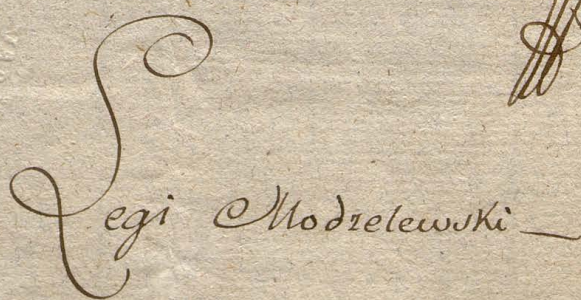 Legi Modzelewski